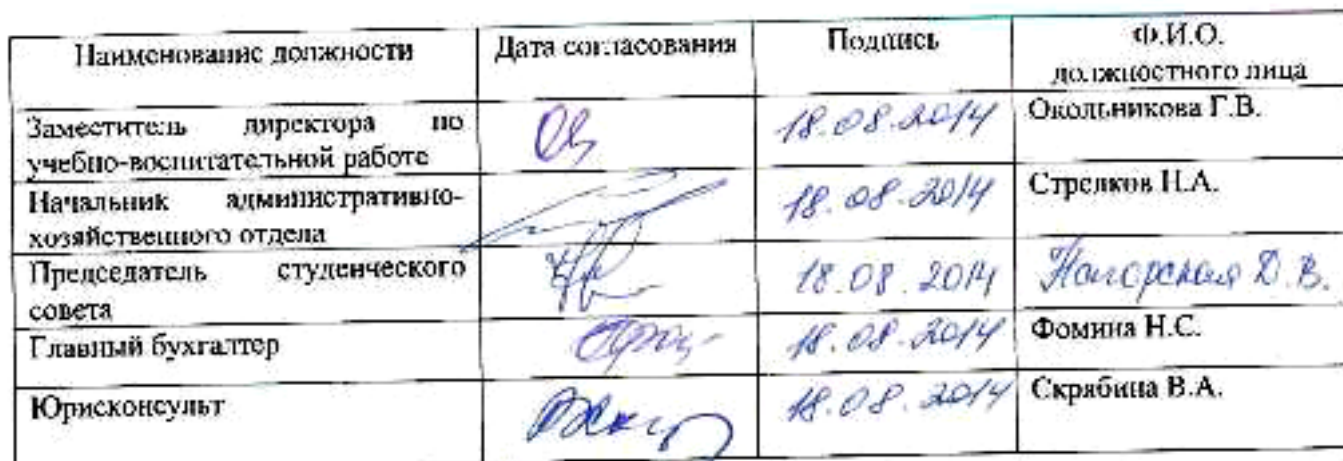 Наименование должности
Дата согласования
Подпись
Ф.И.О.
должностного лица
Заместитель директора по
учебно-воспитательной работе
18.08.2014
Окольникова Г.В.
Начальник административно-
хозяйственного отдела
18.08.2014
Стрелков Н.А.
Председатель студенческого
совета
18.08.2014
Д.В.
Главный бухгалтер
18.08.2014
Фомина Н.С.
Юрисконсульт
18.08.2014
Скрябина В.А.